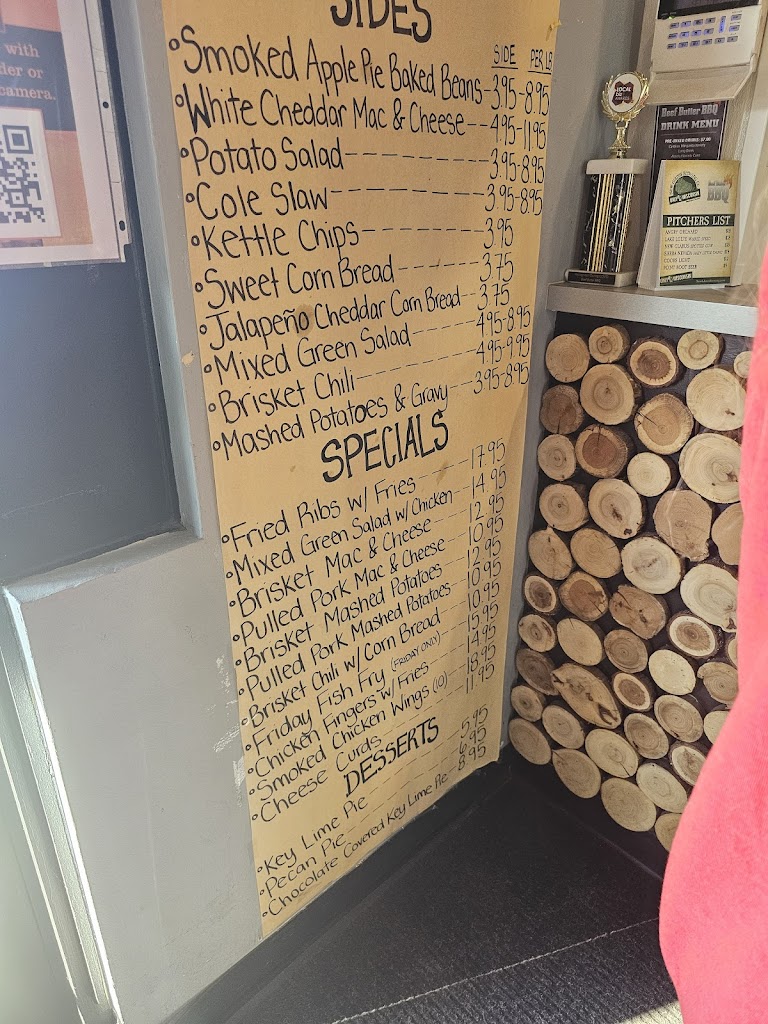 with
der or
camera.
SIDES
SIDE PER LB
°Smoked Apple Pie Baked Beans-3.95-8.95
°White Cheddar Mac & Cheese--4.95-11.95
°Potato Salad 3.95-8.95
°Cole Slaw 3.95-8.95
°Kettle Chips 3.95
°Sweet Corn Bread 3.75
°Jalapeño Cheddar Corn Bread 3.75
°Mixed Green Salad 4.95-8.95
°Brisket Chili 4.95-9.95
°Mashed Potatoes & Gravy 3.95-8.95
SPECIALS
°Fried Ribs w/ Fries 17.95
°Mixed Green Salad w/ Chicken 14.95
°Brisket Mac & Cheese 12.95
°Pulled Pork Mac & Cheese 10.95
°Brisket Mashed Potatoes 12.95
°Pulled Pork Mashed Potatoes 10.95
°Brisket Chili w/ Corn Bread 10.95
°Friday Fish Fry (FRIDAY ONLY) 15.95
°Chicken Fingers w/ Fries 14.95
°Smoked Chicken Wings (10) 18.95
°Cheese Curds 11.95
DESSERTS
°Key Lime Pie 5.95
°Pecan Pie 6.95
°Chocolate Covered Key Lime Pie 8.95
LOCAL
Beef Butter BBQ
DRINK MENU
BBQ
PITCHERS LIST
ANGRY ORCHARD
COORS LIGHT